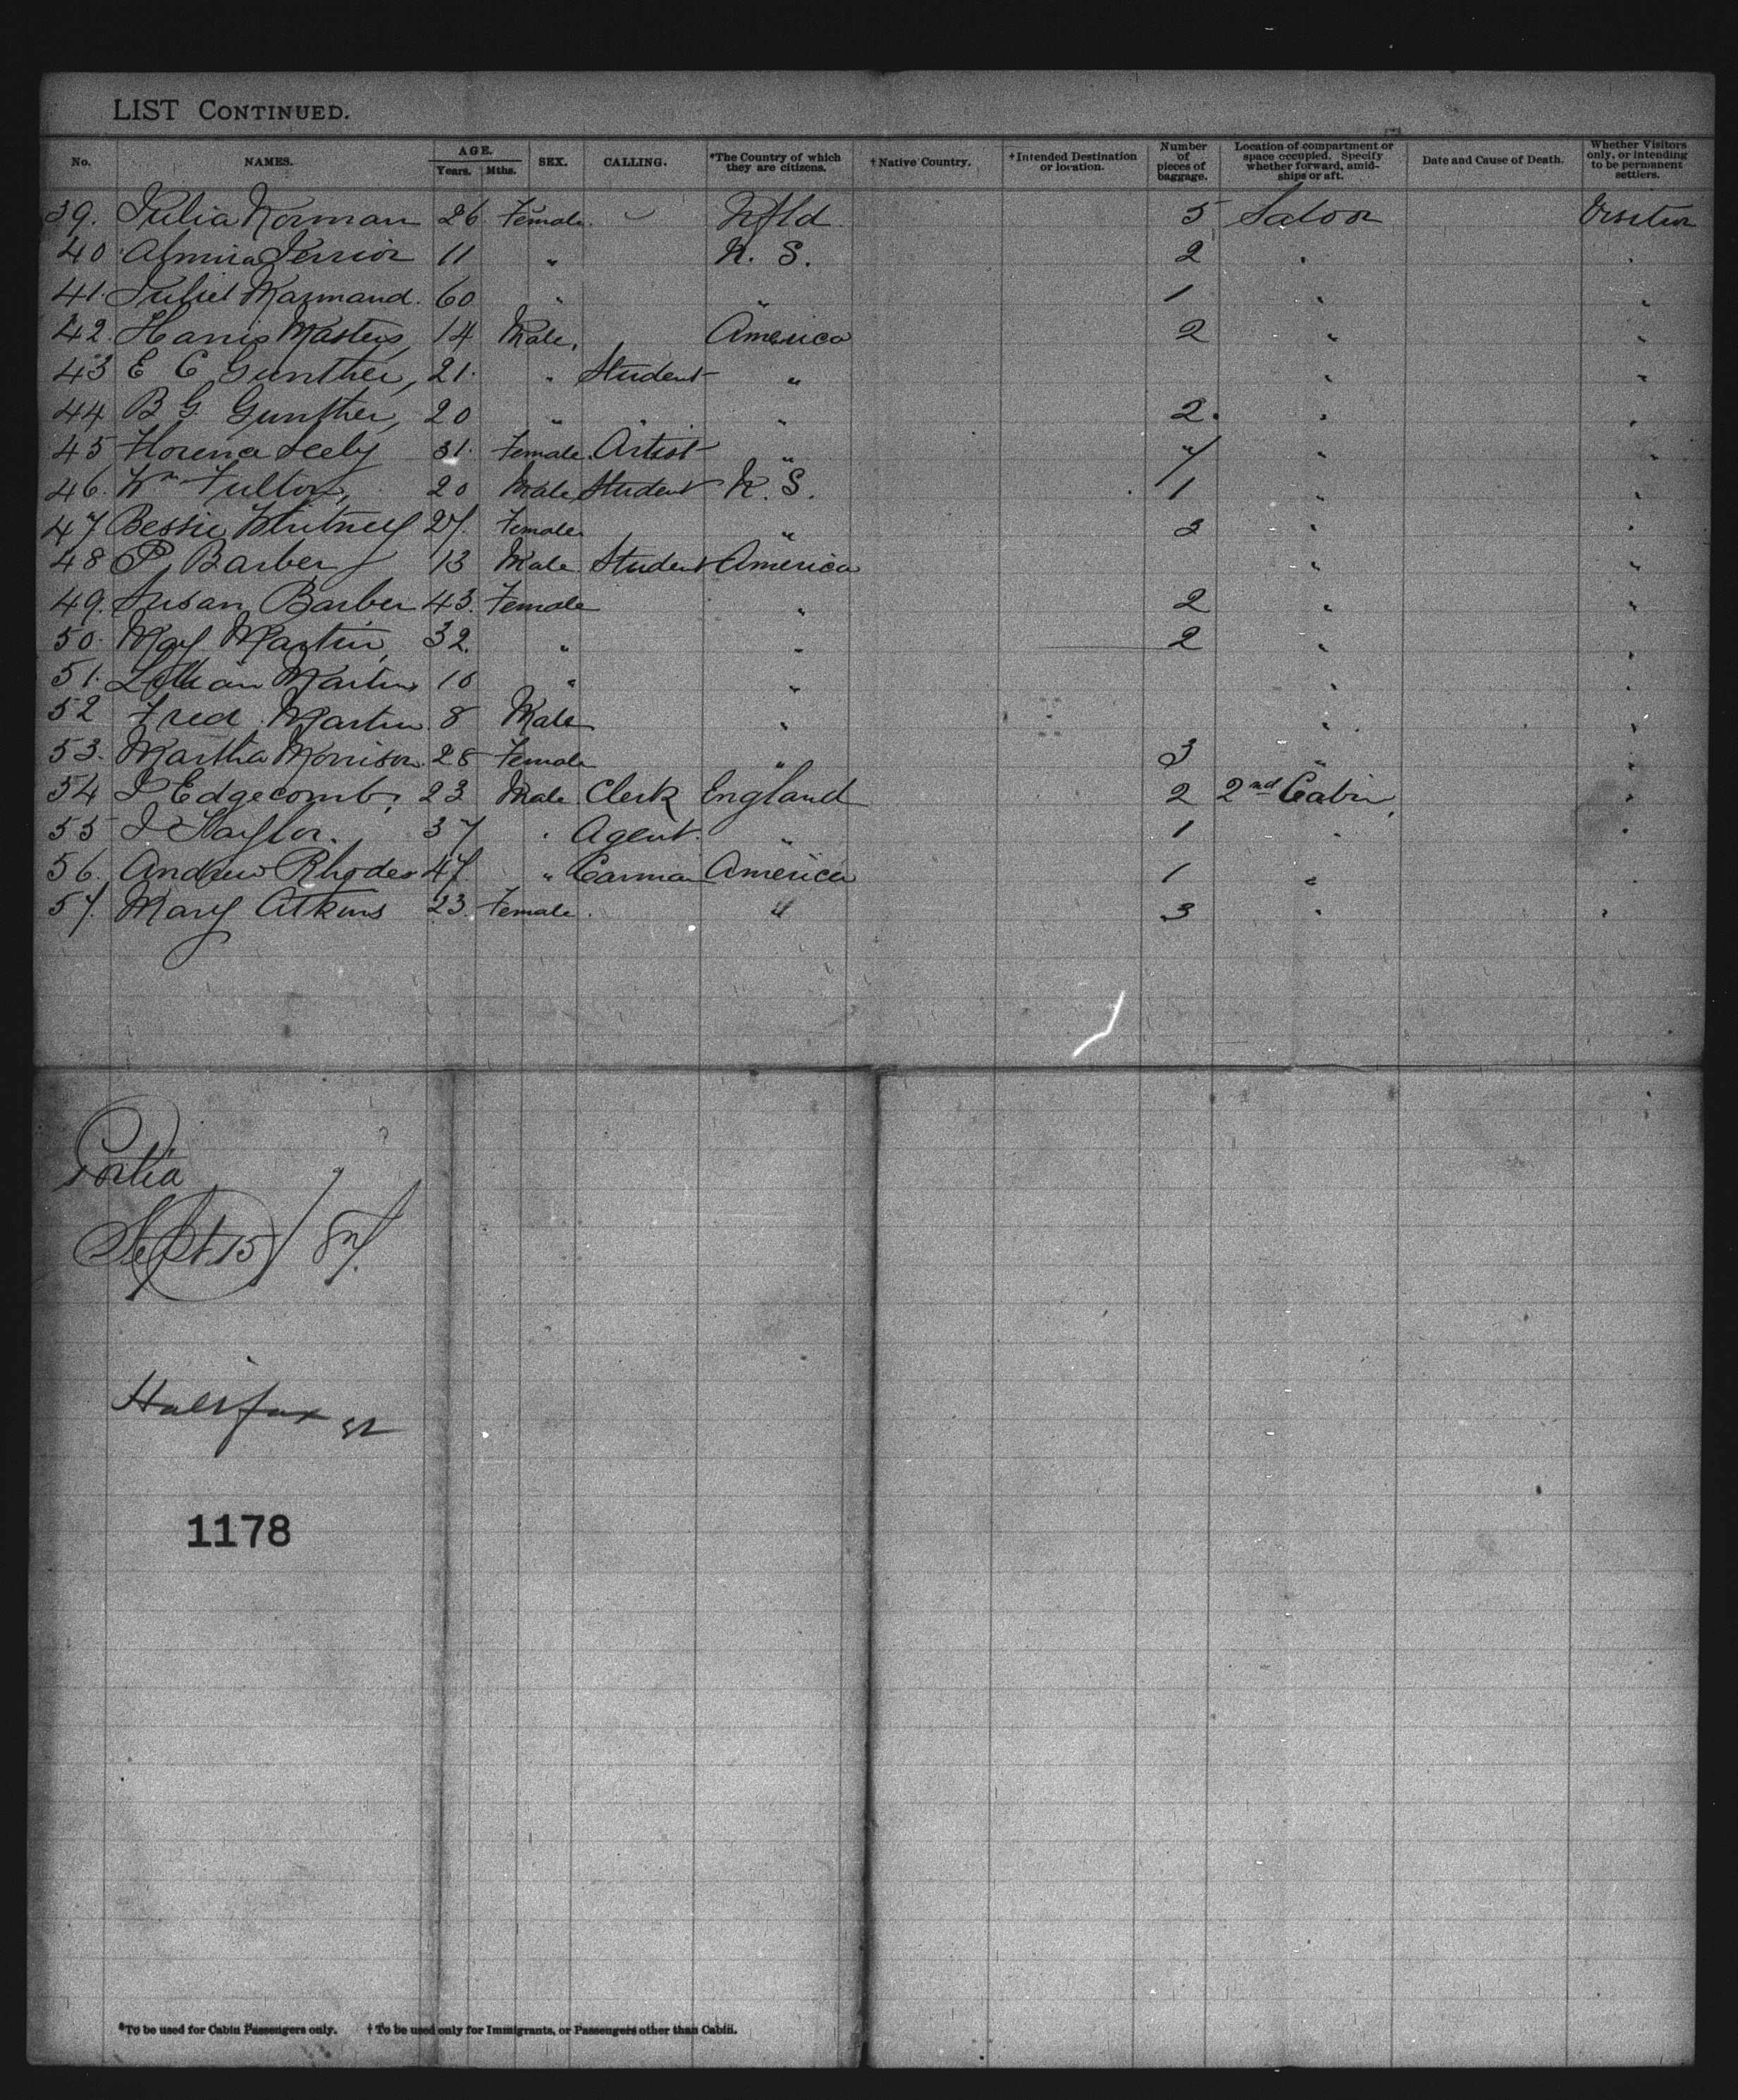 LIST CONTINUED.
No. NAMES. AGE. Years. Mths. SEX. CALLING. *The Country of which they are citizens. †Native Country. †Intended Destination or location. Number of pieces of baggage. Location of compartment or space occupied. Specify whether forward, amidships or aft. Date and Cause of Death. Whether Visitors only, or intending to be permanent settlers.
39. Julia Norman 26 Female Nfld 5 Saloon Visitor
40 Almira 11 " N. S. 2 " "
41. Juliet Marmand. 60 " " 1 " "
42. Harris Masters, 14 Male, America 2 " "
43 E C Gunther, 21. " Student " " "
44 B G Gunther, 20 " " " 2. " "
45 Seely 31. Female. Artist " " "
46. Wm Fulton, 20 Male Student N. S. 1 " "
47 Bessie Whitney 27. Female " 2 " "
48 P. Barber 13 Male Student America " "
49. Susan Barber 43. Female " 2 " "
50. May Martin, 32. " " 2 " "
51. Lillian Martin 10 " " " "
52 Fred Martin 8 Male " " "
53. Martha Morrison. 28 Female " 3 " "
54 J Edgecomb, 23 Male Clerk England 2 2nd Cabin, "
55 J 37 " Agent. " 1 " "
56. Andrew Rhodes 47. " Carman America 1 "
57. Mary Atkins 23. Female. " 3 " "
Portia
Sept 15/87.
Halifax
1178
*To be used for Cabin Passengers only. †To be used only for Immigrants, or Passengers other than Cabin.